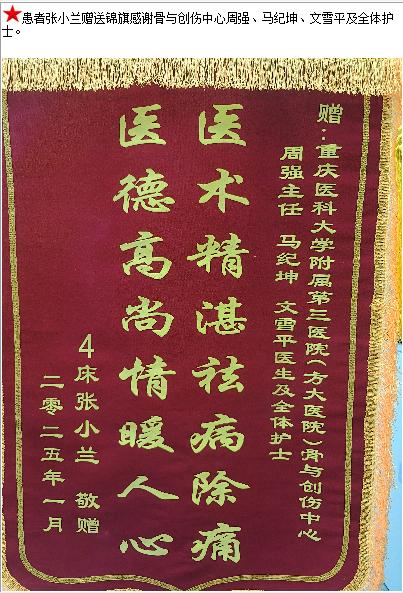 患者张小兰赠送锦旗感谢骨与创伤中心周强、马纪坤、文雪平及全体护
士。
赠：重庆医科大学附属第三医院(方大医院)骨与创伤中心
周强主任 马纪坤 文雪平医生及全体护士
医术精湛祛病除痛
医德高尚情暖人心
4床张小兰 敬赠
二零二五年一月